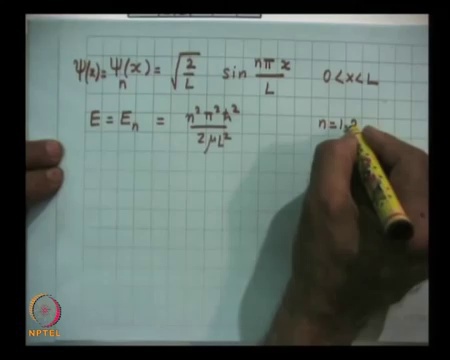 Ψ(x) = Ψn(x) = √(2/L) sin nπx/L 0 < x < L
E = En = n²π²ħ²/2μL² n = 1, 2
NPTEL